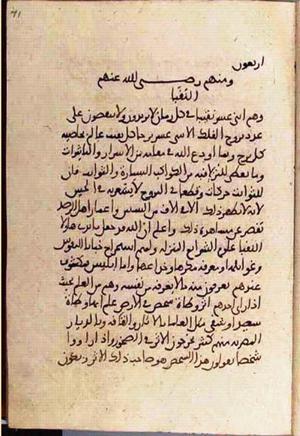 اربعون
ومنهم رضي الله عنهم
النقبا
وهم اثنى عشر نقيبا في كل زمان لا يزيدون ولا ينقصون على
عدد بروج الفلك الاثنى عشر برجا كل نقيب عالم بخاصية
كل برج وبما اودع الله في مقامه من الاسرار والتاثيرات
وما يعطى للنزلا فيه من الكواكب السيارة والثوابت فان
للثوابت حركات وقطعا في البروج لا يشعر به في الحس
لانه لا يظهر ذلك الا في الاف من السنين واعمار اهل الرصد
تقصر عن مشاهدة ذلك واعلم ان الله قد جعل بايدي هولا
النقبا علوم الشرائع المنزلة ولهم استخراج خبايا النفوس
وغوائلها ومعرفة مكرها وخداعها واما ابليس فمكشوف
عندهم يعرفون منه ما لا يعرفه من نفسه وهم من العلم بحيث
اذا راى احدهم اثر وطاة شخص في الارض علم انها وطاة
سعيد او شقي مثل العلما بالاثار والقيافة وبالديار
المصرية منهم كثير يخرجون الاثر في الصخور واذا راوا
شخصا يقولون هذا الشخص هو صاحب ذلك الاثر ويكون